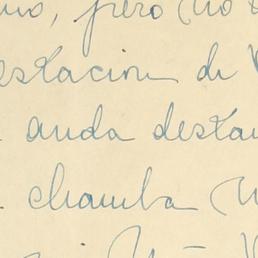 pero (no
estacion de
anda desta
chamba (